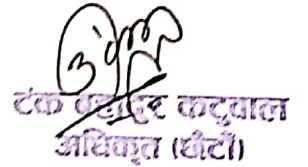 टंक बहादुर कटुवाल
अधिकृत (छैटौं)